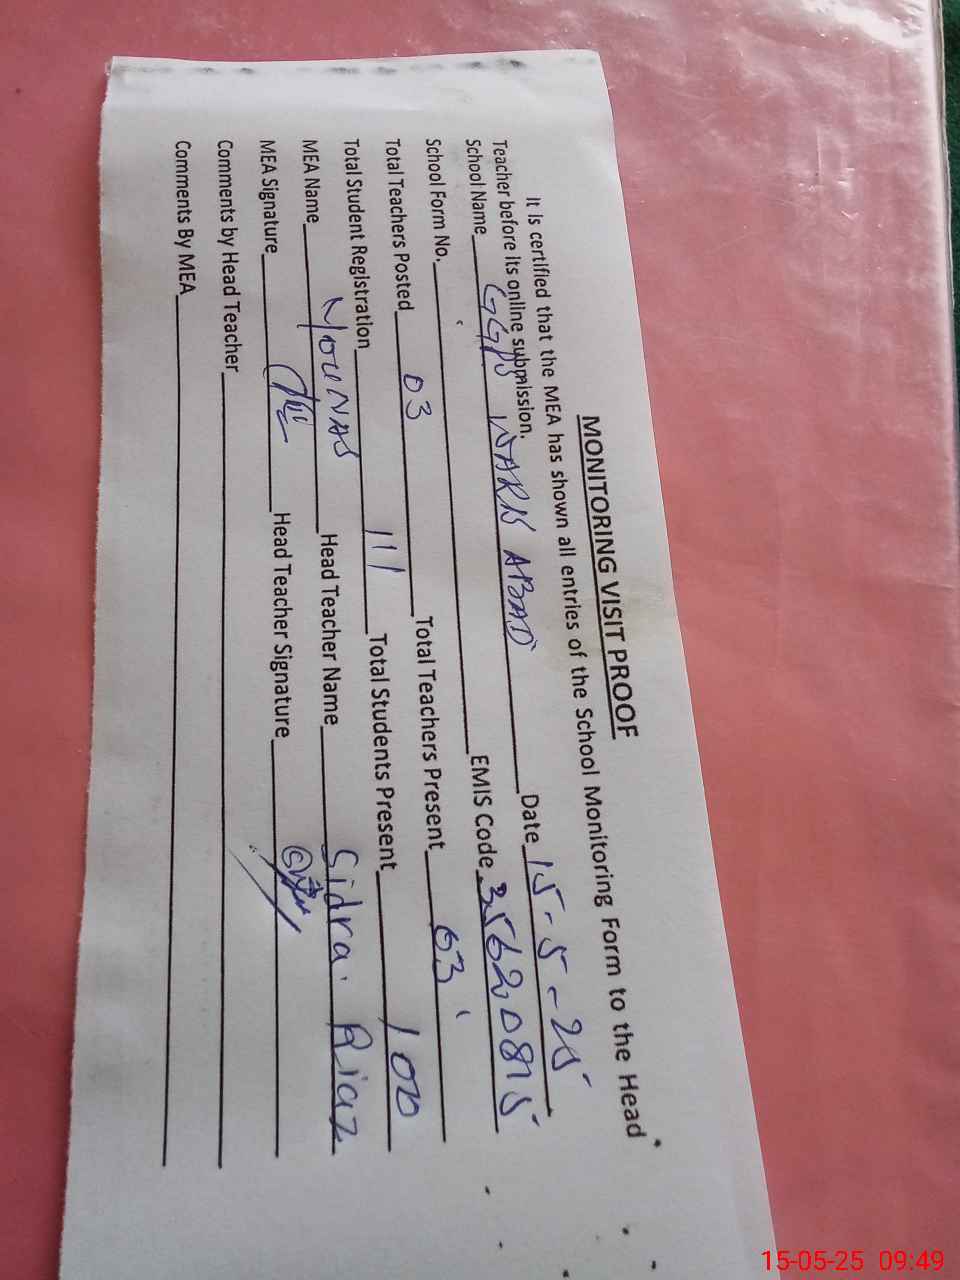 MONITORING VISIT PROOF
It is certified that the MEA has shown all entries of the School Monitoring Form to the Head
Teacher before its online submission.
School Name GGPS WARN ABAD Date 15-5-25
School Form No. EMIS Code 35620815
Total Teachers Posted 03 Total Teachers Present 03
Total Student Registration 111 Total Students Present 100
MEA Name YOUNAS Head Teacher Name Sidra Riaz
MEA Signature Head Teacher Signature
Comments by Head Teacher
Comments By MEA
15-05-25 09:49